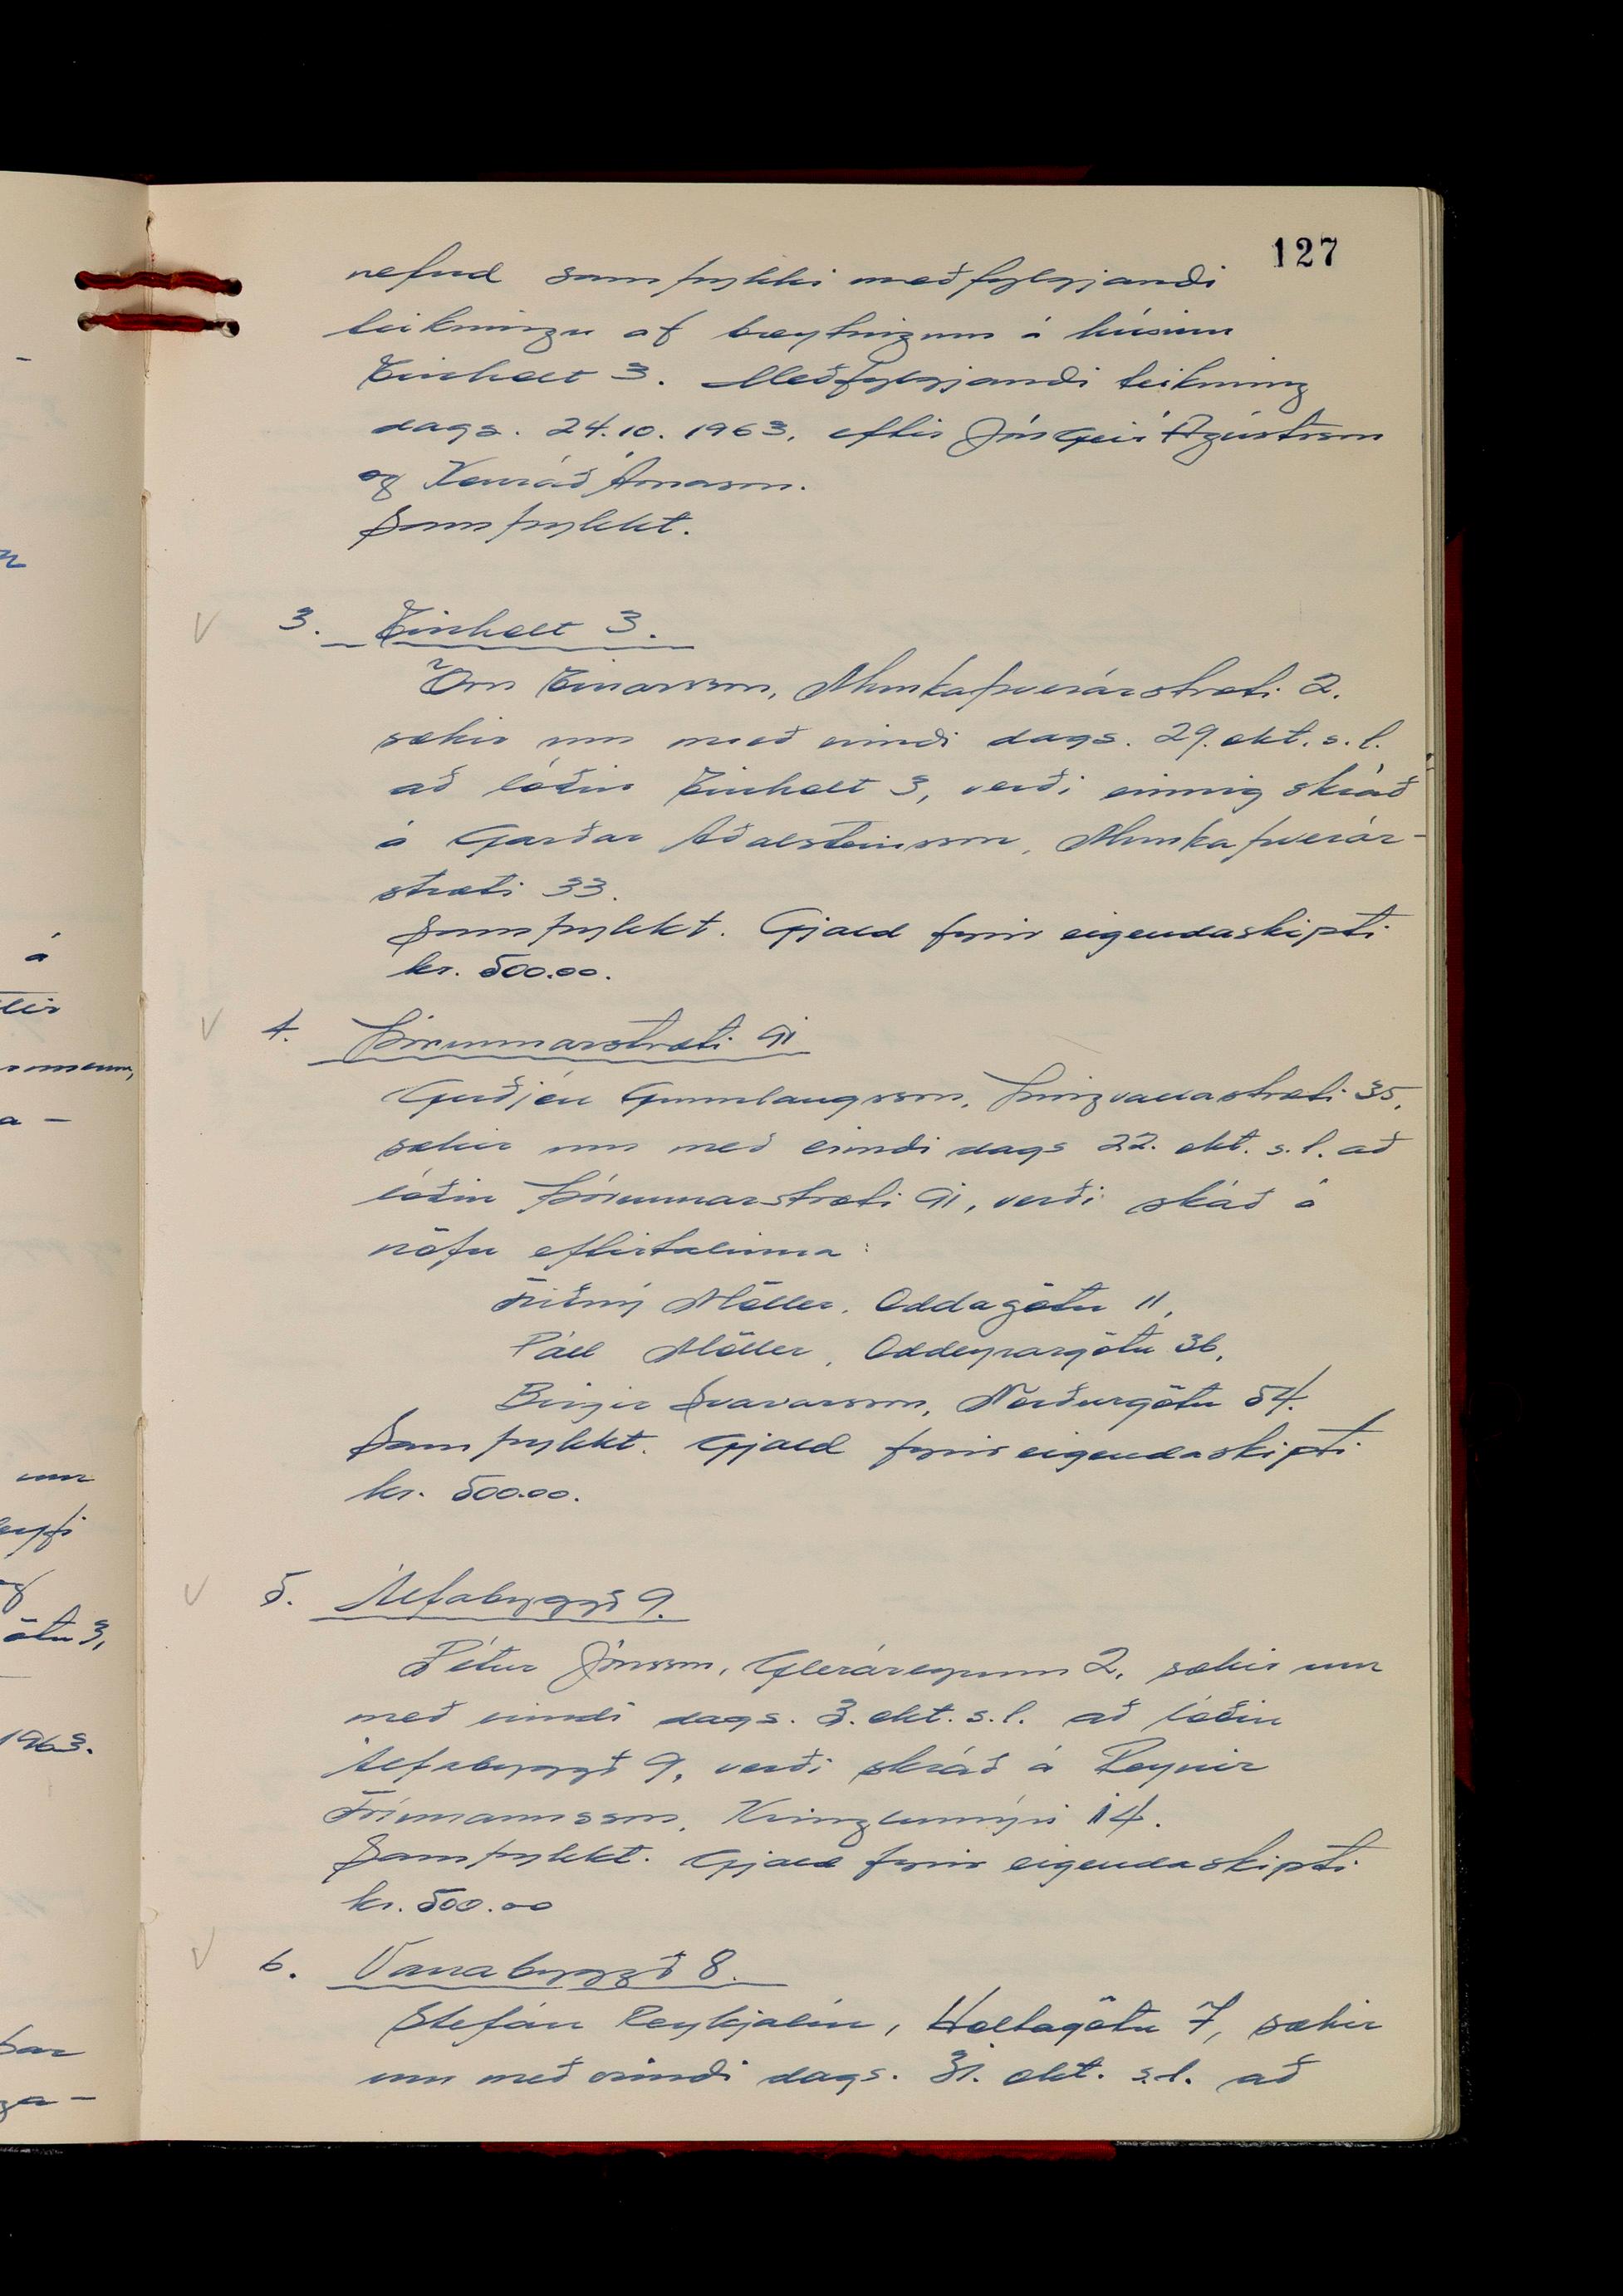 127
nefnd samþykki meðfylgjandi
teikningu af breytingum á húsinu
Einholt 3. Meðfylgjandi teikning
dags. 24.10.1963, eftir Jón Geir Ágústsson
og Konráð Árnason.
Samþykkt.
3. Einholt 3.
Örn Einarsson, Munkaþverárstræti 2.
sækir um með erindi dags. 29. okt. s.l.
að lóðin Einholt 3, verði einnig skráð
á Garðar Aðalsteinsson, Munkaþverár-
stræti 33.
Samþykkt. Gjald fyrir eigendaskipti
kr. 500.00.
4. Þórunnarstræti 91
Guðjón Gunnlaugsson, Þingvallastræti 35,
sækir um með erindi dags 22. okt. s.l. að
lóðin Þórunnarstræti 91, verði skáð á
nöfn eftirtalinna:
Friðný Möller, Oddagötu 11,
Páll Möller, Oddeyrargötu 36,
Birgir Svavarsson, Norðurgötu 54.
Samþykkt. Gjald fyrir eigendaskipti
kr. 500.00.
5. Álfabyggð 9.
Pétur Jónsson, Gleráreyrum 2, sækir um
með erindi dags. 3. okt. s.l. að lóðin
Álfabyggð 9, verði skráð á Reynir
Frímannsson, Kringlumýri 14.
Samþykkt. Gjald fyrir eigendaskipti
kr. 500.00
6. Vanabyggð 8.
Stefán Reykjalín, Holtagötu 7, sækir
um með erindi dags. 31. okt. s.l. að